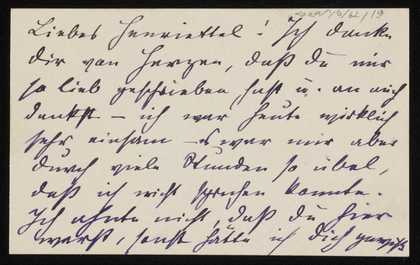 Liebes Henriettel! Ich danke
dir von Herzen, daß du mir
so lieb geschrieben hast u. an mich
denkst – ich war heute wirklich
sehr einsam – es war mir aber
durch viele Stunden so übel,
daß ich nicht sprechen konnte.
Ich ahnte nicht, daß du hier
warst, sonst hätte ich dich gewiß